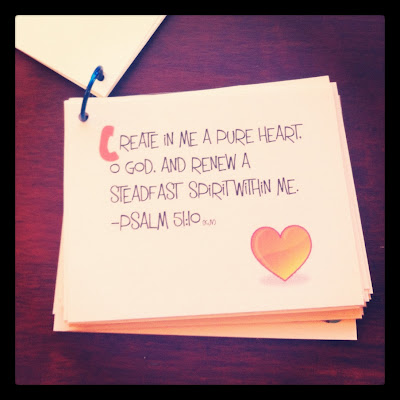 CREATE IN ME A PURE HEART,
O GOD, AND RENEW A
STEADFAST SPIRIT WITHIN ME.
-PSALM 51:10